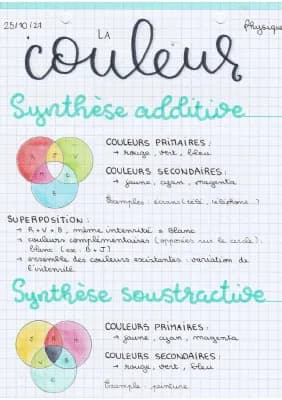 25/10/21
LA
Physique
couleur
Synthèse additive
COULEURS PRIMAIRES :
→ rouge, vert, bleu
COULEURS SECONDAIRES :
→ jaune, cyan, magenta
Exemples : écrans (télé, téléphone...)
SUPERPOSITION :
→ R + V + B, même intensité = blanc
→ couleurs complémentaires (opposées sur le cercle) :
blanc (ex : B + J)
→ ensemble des couleurs existantes : variation de
l'intensité
Synthèse soustractive
COULEURS PRIMAIRES :
→ jaune, cyan, magenta
COULEURS SECONDAIRES :
→ rouge, vert, bleu
Exemple : peinture